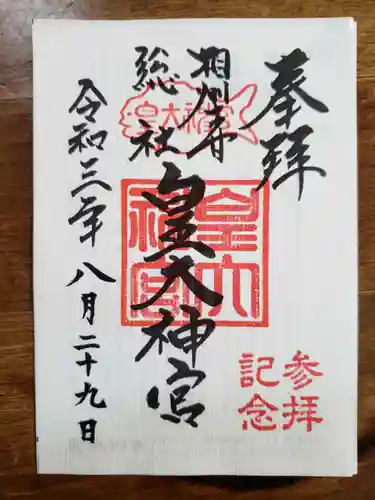 奉拝
相州
総社
皇大神宮
皇大神宮
皇大
神宮
令和三年八月二十九日
参拝
記念